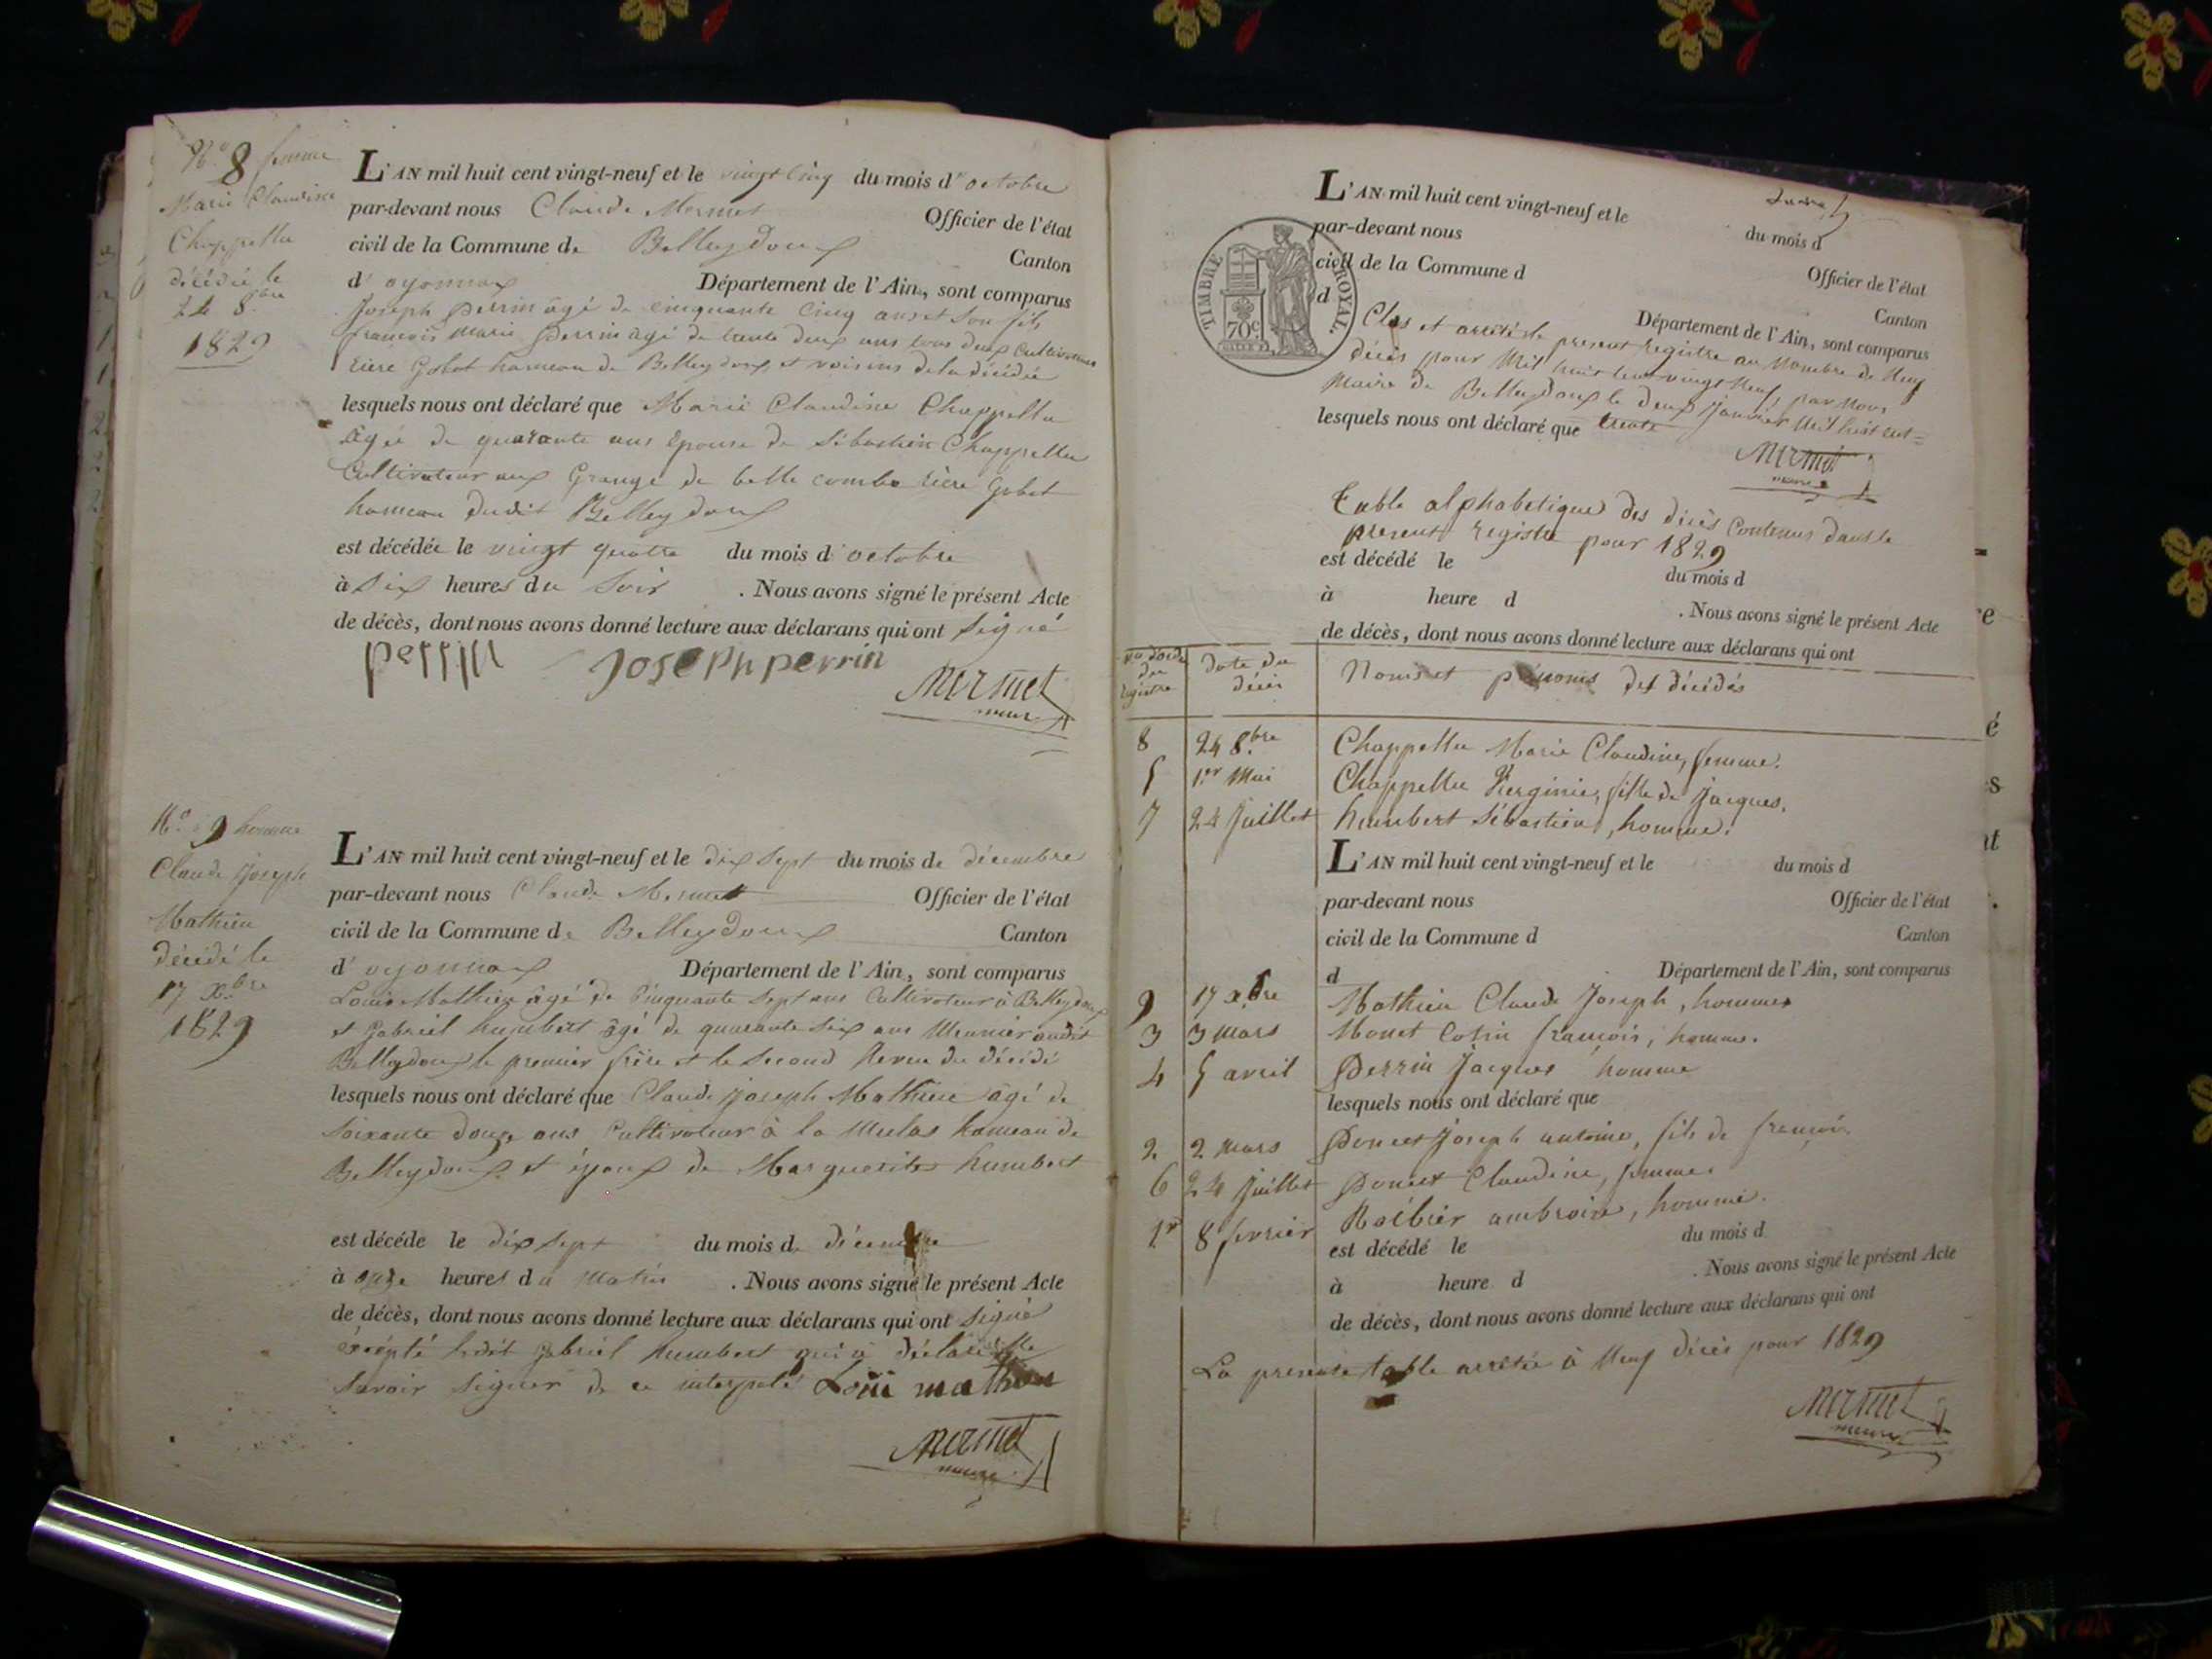 N.o 8 femme
Marie Claudine
Chappellu
décédée le
24 8.bre
1829
L'AN mil huit cent vingt-neuf et le vingt cinq du mois d'octobre
par-devant nous Claude Mermet Officier de l'état
civil de la Commune de Belleydoux Canton
d'oyonnax Département de l'Ain, sont comparus
Joseph Perrin âgé de cinquante cinq ans et son fils
françois Marie Perrin âgé de trente deux ans tous deux cultivateurs
rière Gobet hameau de Belleydoux et voisins de la décédée
lesquels nous ont déclaré que Marie Claudine Chappellu
âgée de quarante ans Epouse de Sébastien Chappellu
Cultivateur aux Grange de belle combe rière Gobet
hameau dudit Belleydoux
est décédée le vingt quatre du mois d'octobre
à Six heures du Soir . Nous avons signé le présent Acte
de décès, dont nous avons donné lecture aux déclarans qui ont signé
perrin Joseph perrin
Mermet
maire
N.o 9 homme
Claude Joseph
Mathieu
décédé le
17 X.bre
1829
L'AN mil huit cent vingt-neuf et le dix sept du mois de décembre
par-devant nous Claude Mermet Officier de l'état
civil de la Commune de Belleydoux Canton
d'oyonnax Département de l'Ain, sont comparus
Louis Mathieu âgé de Cinquante sept ans Cultivateur à Belleydoux
et Gabriel humbert âgé de quarante six ans Meunier audit
Belleydoux le premier frère et le Second Neveu du décédé
lesquels nous ont déclaré que Claude Joseph Mathieu âgé de
Soixante douze ans Cultivateur à la hameau de
Belleydoux et époux de Marguerite humbert
est décéde le dix sept du mois de décembre
à onze heures du Matin . Nous avons signé le présent Acte
de décès, dont nous avons donné lecture aux déclarans qui ont signé
excépté ledit Gabriel humbert qui a déclaré ne
Savoir signer de ce interpelé Loui mathieu
Mermet
maire
L'AN mil huit cent vingt-neuf et le du mois d
par-devant nous Officier de l'état
civil de la Commune d Canton
d Département de l'Ain, sont comparus
TIMBRE ROYAL.
70c
Clos et arrêté le présent registre au Nombre de Neuf
décès pour Mil huit cent vingt Neuf, par Nous
Maire de Belleydoux le deux Janvier Mil huit cent=
lesquels nous ont déclaré que trente
Mermet
maire
Table alphabetique des décès Contenus dans le
present registre pour 1829
est décédé le du mois d
à heure d . Nous avons signé le présent Acte
de décès, dont nous avons donné lecture aux déclarans qui ont
No d'ordre du registre date du décès Noms et prénoms des décédés
8 24 8.bre Chappellu Marie Claudine, femme.
5 1er Mai Chappellu Verginie, fille de Jacques.
7 24 Juillet humbert Sébastien, homme.
L'AN mil huit cent vingt-neuf et le du mois d
par-devant nous Officier de l'état
civil de la Commune d Canton
d Département de l'Ain, sont comparus
9 17 xbre Mathieu Claude Joseph, homme
3 3 mars Monet Cotin françois, homme.
4 5 avril Perrin Jacques homme
lesquels nous ont déclaré que
2 2 mars Poncet Joseph antoine, fils de françois
6 24 Juillet Poncet Claudine, femme.
1er 8 fevrier ambroise, homme.
est décédé le du mois d
à heure d . Nous avons signé le présent Acte
de décès, dont nous avons donné lecture aux déclarans qui ont
La presente table arrêtée à Neuf décès pour 1829
Mermet
maire